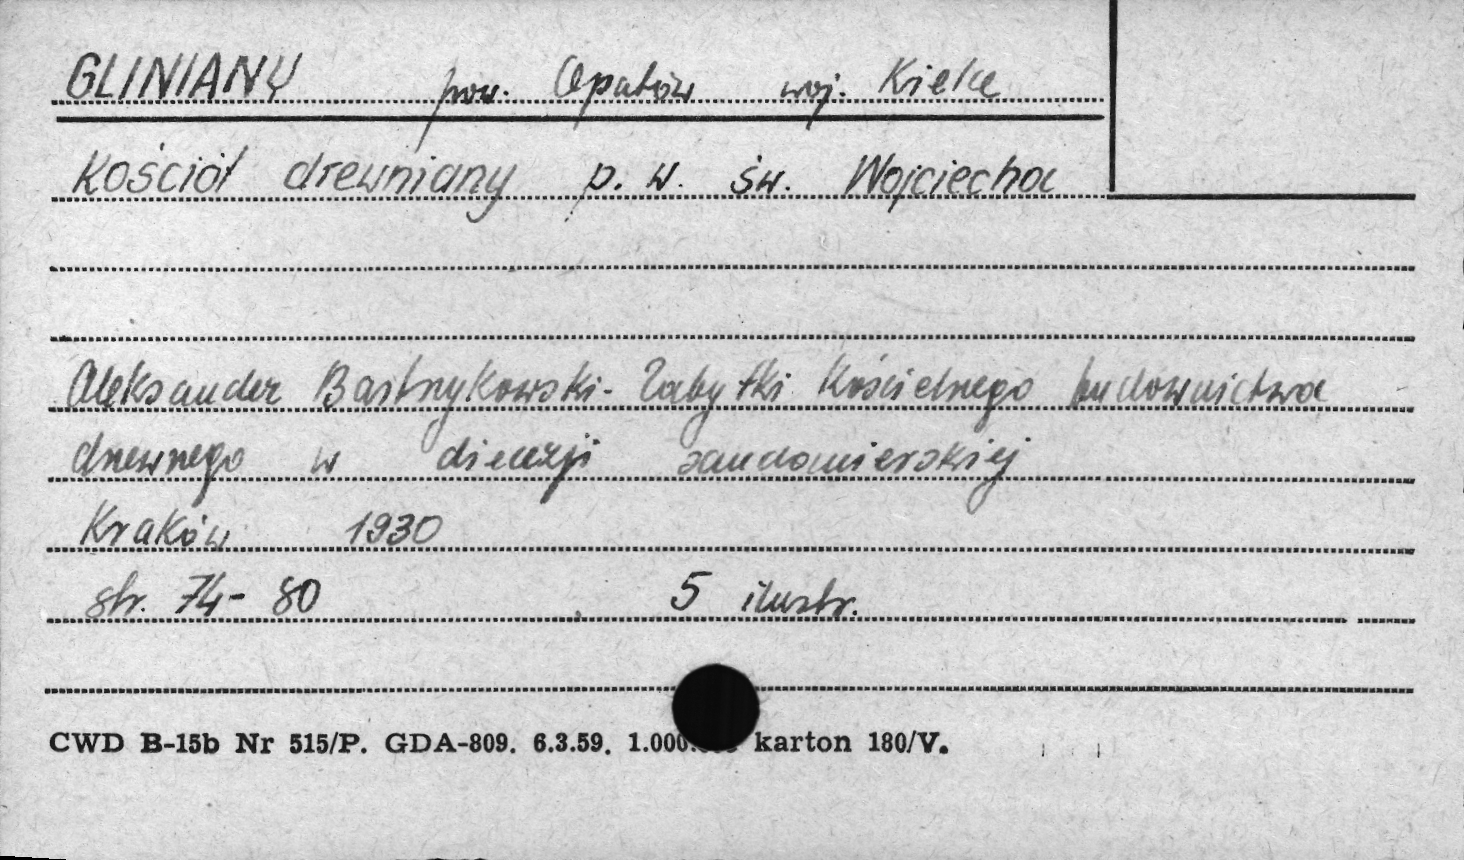 GLINIANY pow. Opatów woj. Kielce
Kościół drewniany p. w. św. Wojciecha
Aleksander Bastrzykowski - Zabytki Kościelnego budownictwa
drewnego w diecezji sandomierskiej
Kraków 1930
str. 74-80 5 ilustr.
CWD B-15b Nr 515/P. GDA-809. 6.3.59. 1.000. karton 180/V.